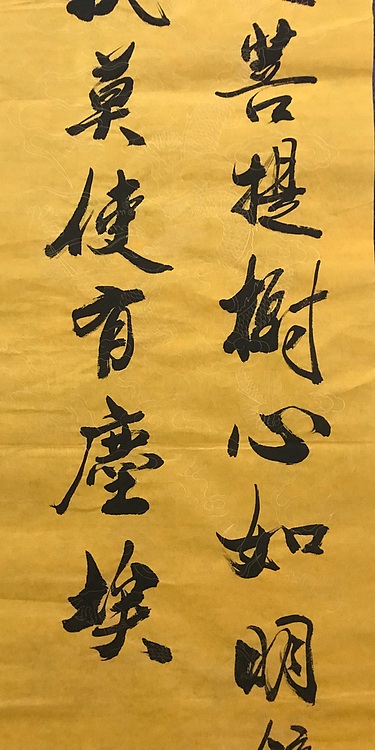 菩提樹心如明
莫使有塵埃